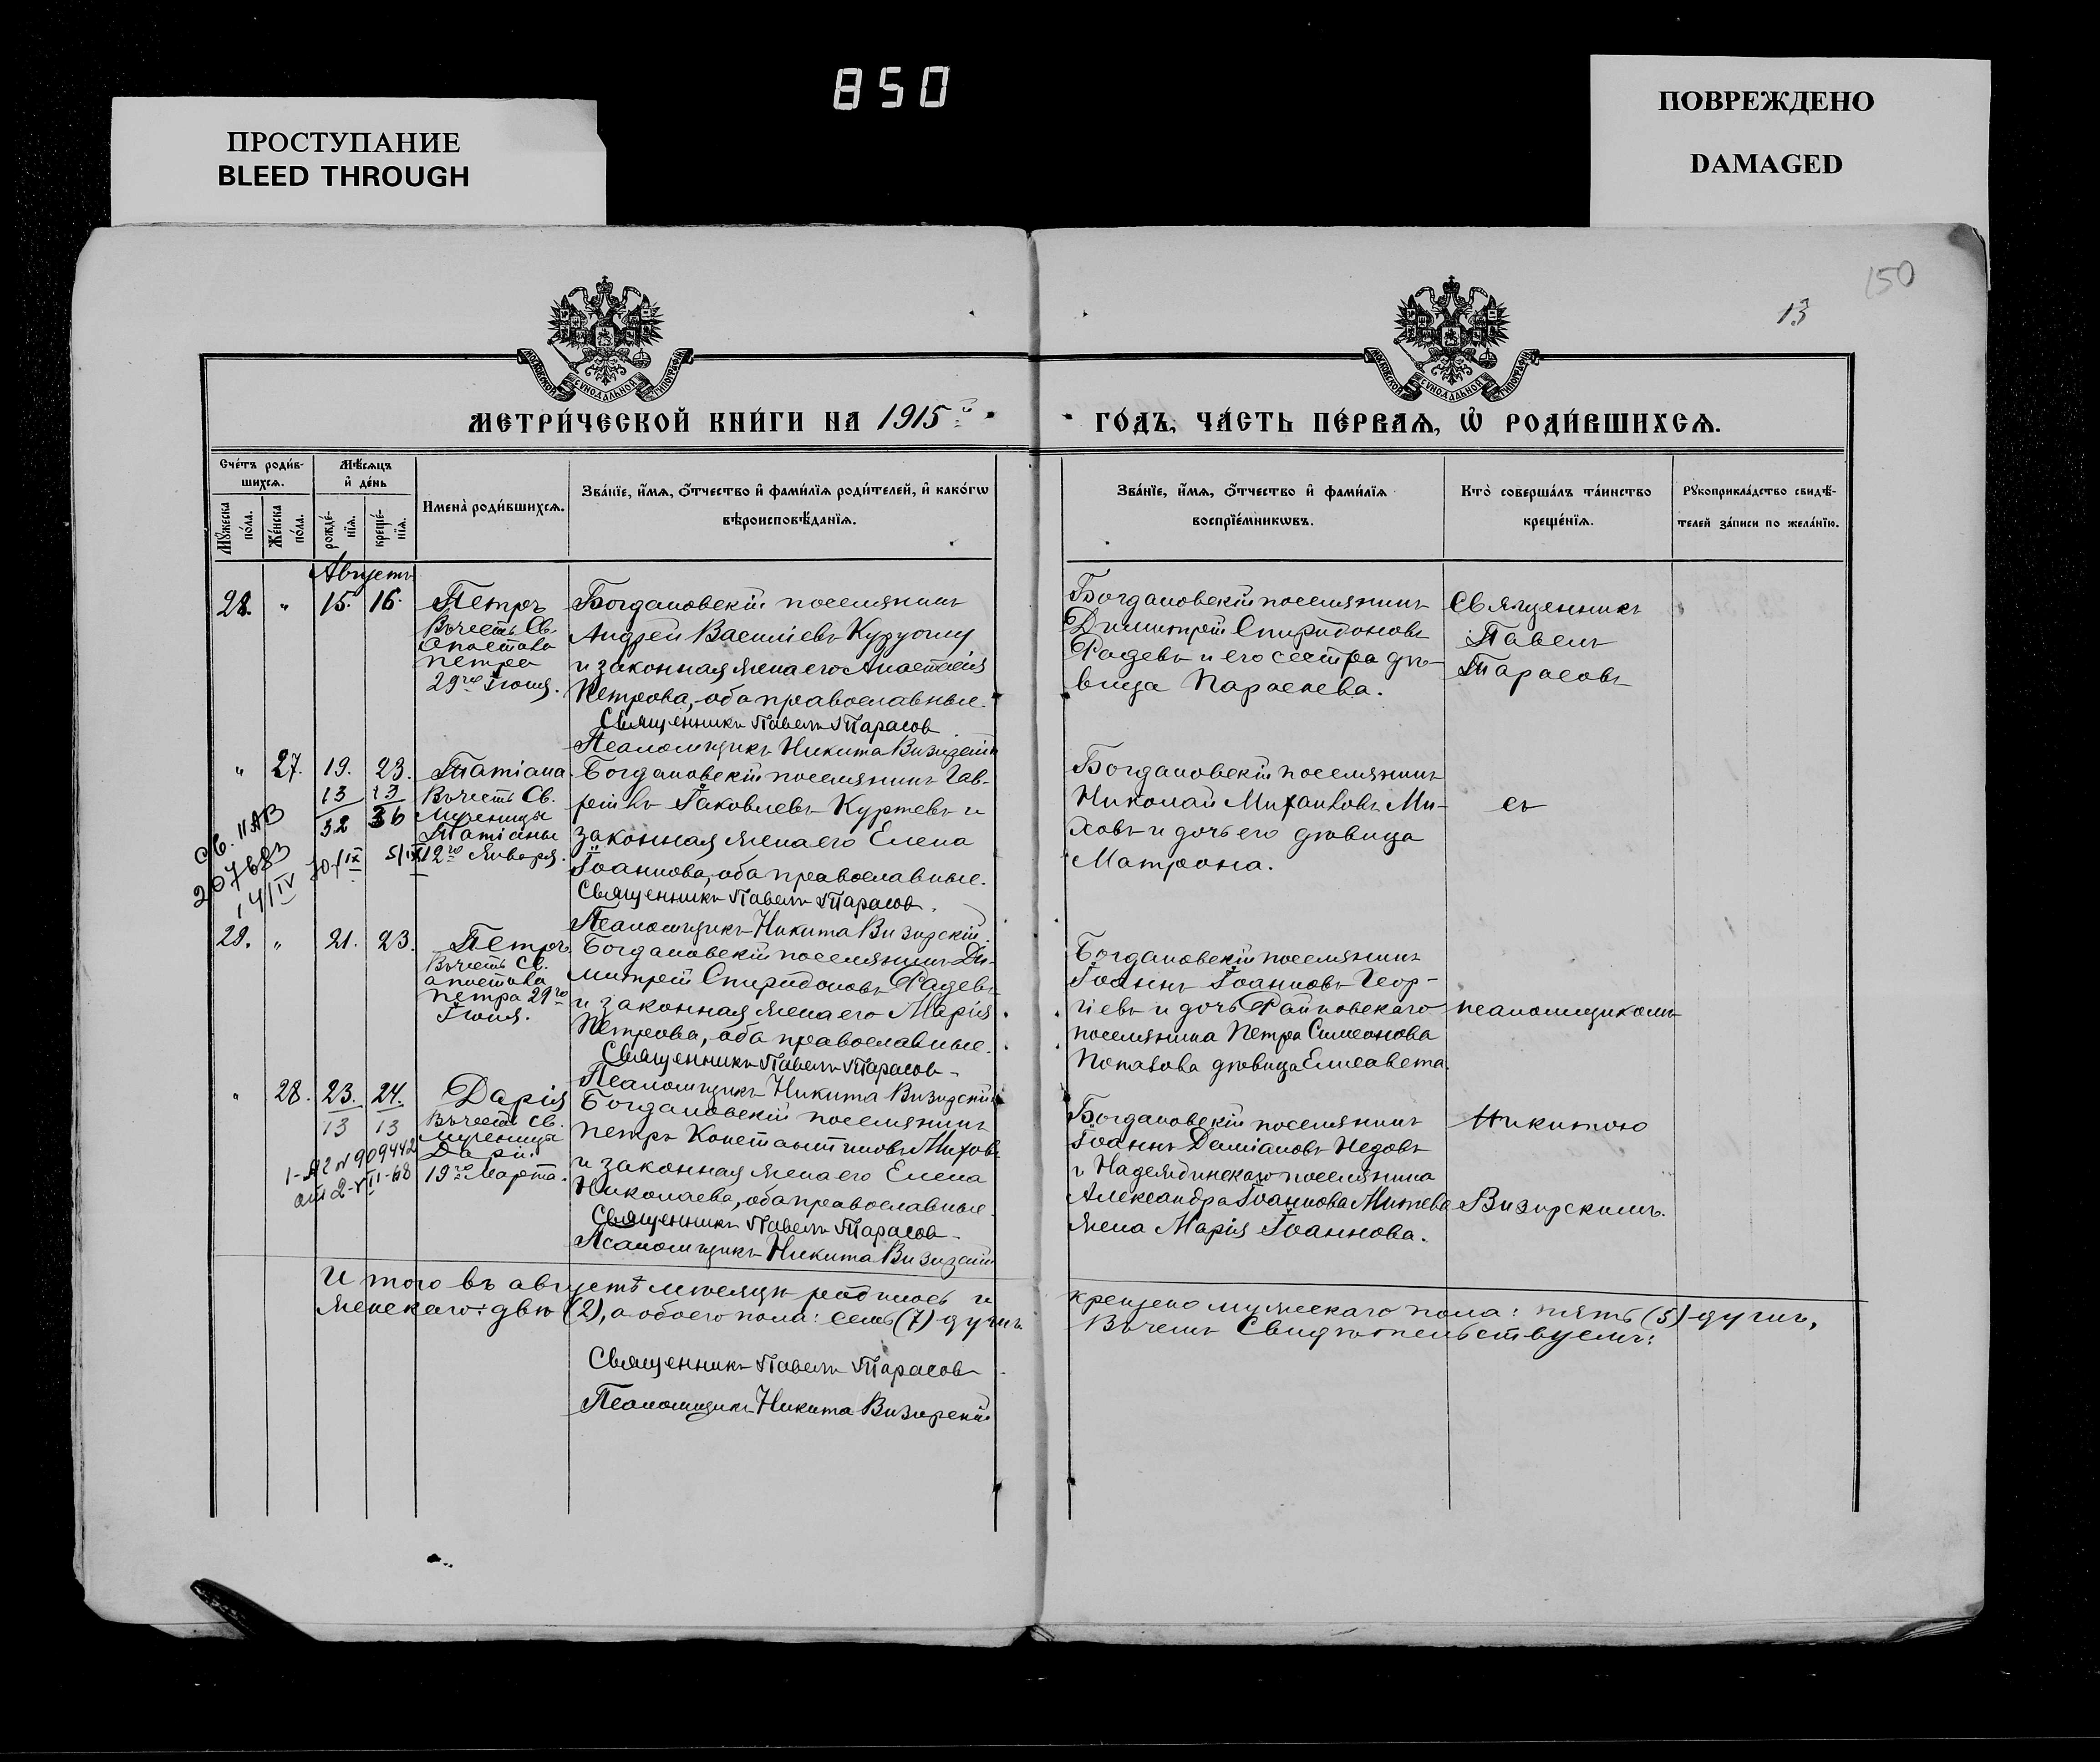 850
ПРОСТУПАНИЕ
BLEED THROUGH
ПОВРЕЖДЕНО
DAMAGED
150
13
МОСКОВСКОЙ СѴНОДАЛЬНОЙ ТИПОГРАФІИ
МОСКОВСКОЙ СѴНОДАЛЬНОЙ ТИПОГРАФІИ
МЕТРИ́ЧЕСКОЙ КНИ́ГИ НА 1915 ГО́ДЪ, ЧА́СТЬ ПЕ́РВАѦ, Ѡ҆ РОДИ́ВШИХСѦ.
Сче́тъ роди́в-
шихсѧ.
Мꙋжеска
по́ла.
Же́нска
по́ла.
Мѣ́сѧцъ
и҆ де́нь
рожде́-
нїѧ.
креще́-
нїѧ.
Имена̀ роди́вшихсѧ.
Зва́нїе, и҆́мѧ, ѻ҆́тчество и҆ фами́лїѧ роди́телей, и҆ како́гѡ
вѣроисповѣ́данїѧ.
Зва́нїе, и҆́мѧ, ѻ҆́тчество и҆ фами́лїѧ
воспрїе́мникѡвъ.
Кто̀ соверша́лъ та́инство
креще́нїѧ.
Рꙋкоприкла́дство свидѣ́-
телей за́писи по жела́нїю.
Августъ
28. " 15. 16.
Петръ
Въ честь Св.
Апостола
Петра
29го Іюня.
Богдановскій поселянинъ
Андрей Василіевъ Курдоглу
и законная жена его Анастасія
Петрова, оба православные.
Священникъ Павелъ Тарасовъ
Псаломщикъ Никита Визирскій
Богдановскій поселянинъ
Димитрій Спиридоновъ
Радевъ и его сестра дѣ-
вица Параскева.
Священникъ
Павелъ
Тарасовъ
" 27. 19. 23.
13 13
32 36
Татіана
Въ честь Св.
Мученицы
Татіаны
12го Января.
Св. II АВ
207683
14/IV
5/IX
Богдановскій поселянинъ Гав-
ріилъ Іаковлевъ Куртевъ и
законная жена его Елена
Іоаннова, оба православные.
Священникъ Павелъ Тарасовъ.
Псаломщикъ Никита Визирскій.
Богдановскій поселянинъ
Николай Михаиловъ Ми-
ховъ и дочь его дѣвица
Матрона.
съ
29. " 21. 23.
Петръ
Въ честь Св.
апостола
Петра 29го
Іюня.
Богдановскій поселянинъ Ди-
митрій Спиридоновъ Радевъ
и законная жена его Марія
Петрова, оба православные.
Священникъ Павелъ Тарасовъ
Псаломщикъ Никита Визирскій
Богдановскій поселянинъ
Іоаннъ Іоанновъ Геор-
гіевъ и дочь Райновскаго
поселянина Петра Симеонова
Попазова дѣвица Елисавета.
псаломщикомъ
" 28. 23. 24.
13 13
Дарія
Въ честь Св.
Мученицы
Даріи
19го Марта.
1-А2 N 909442
от 2-VII-68
Богдановскій поселянинъ
Петръ Константиновъ Миховъ
и законная жена его Елена
Николаева, оба православные.
Священникъ Павелъ Тарасовъ
Псаломщикъ Никита Визирскій
Богдановскій поселянинъ
Іоаннъ Даміановъ Недовъ
и Надеждинскаго поселянина
Александра Іоаннова Митева
жена Марія Іоаннова.
Никитою
Визирскимъ.
Итого въ августѣ мѣсяцѣ родилось и крещено мужескаго пола: пять (5) душъ,
женскаго: двѣ (2), а обоего пола: семь (7) душъ. Въ чемъ свидѣтельствуемъ:
Священникъ Павелъ Тарасовъ
Псаломщикъ Никита Визирскій